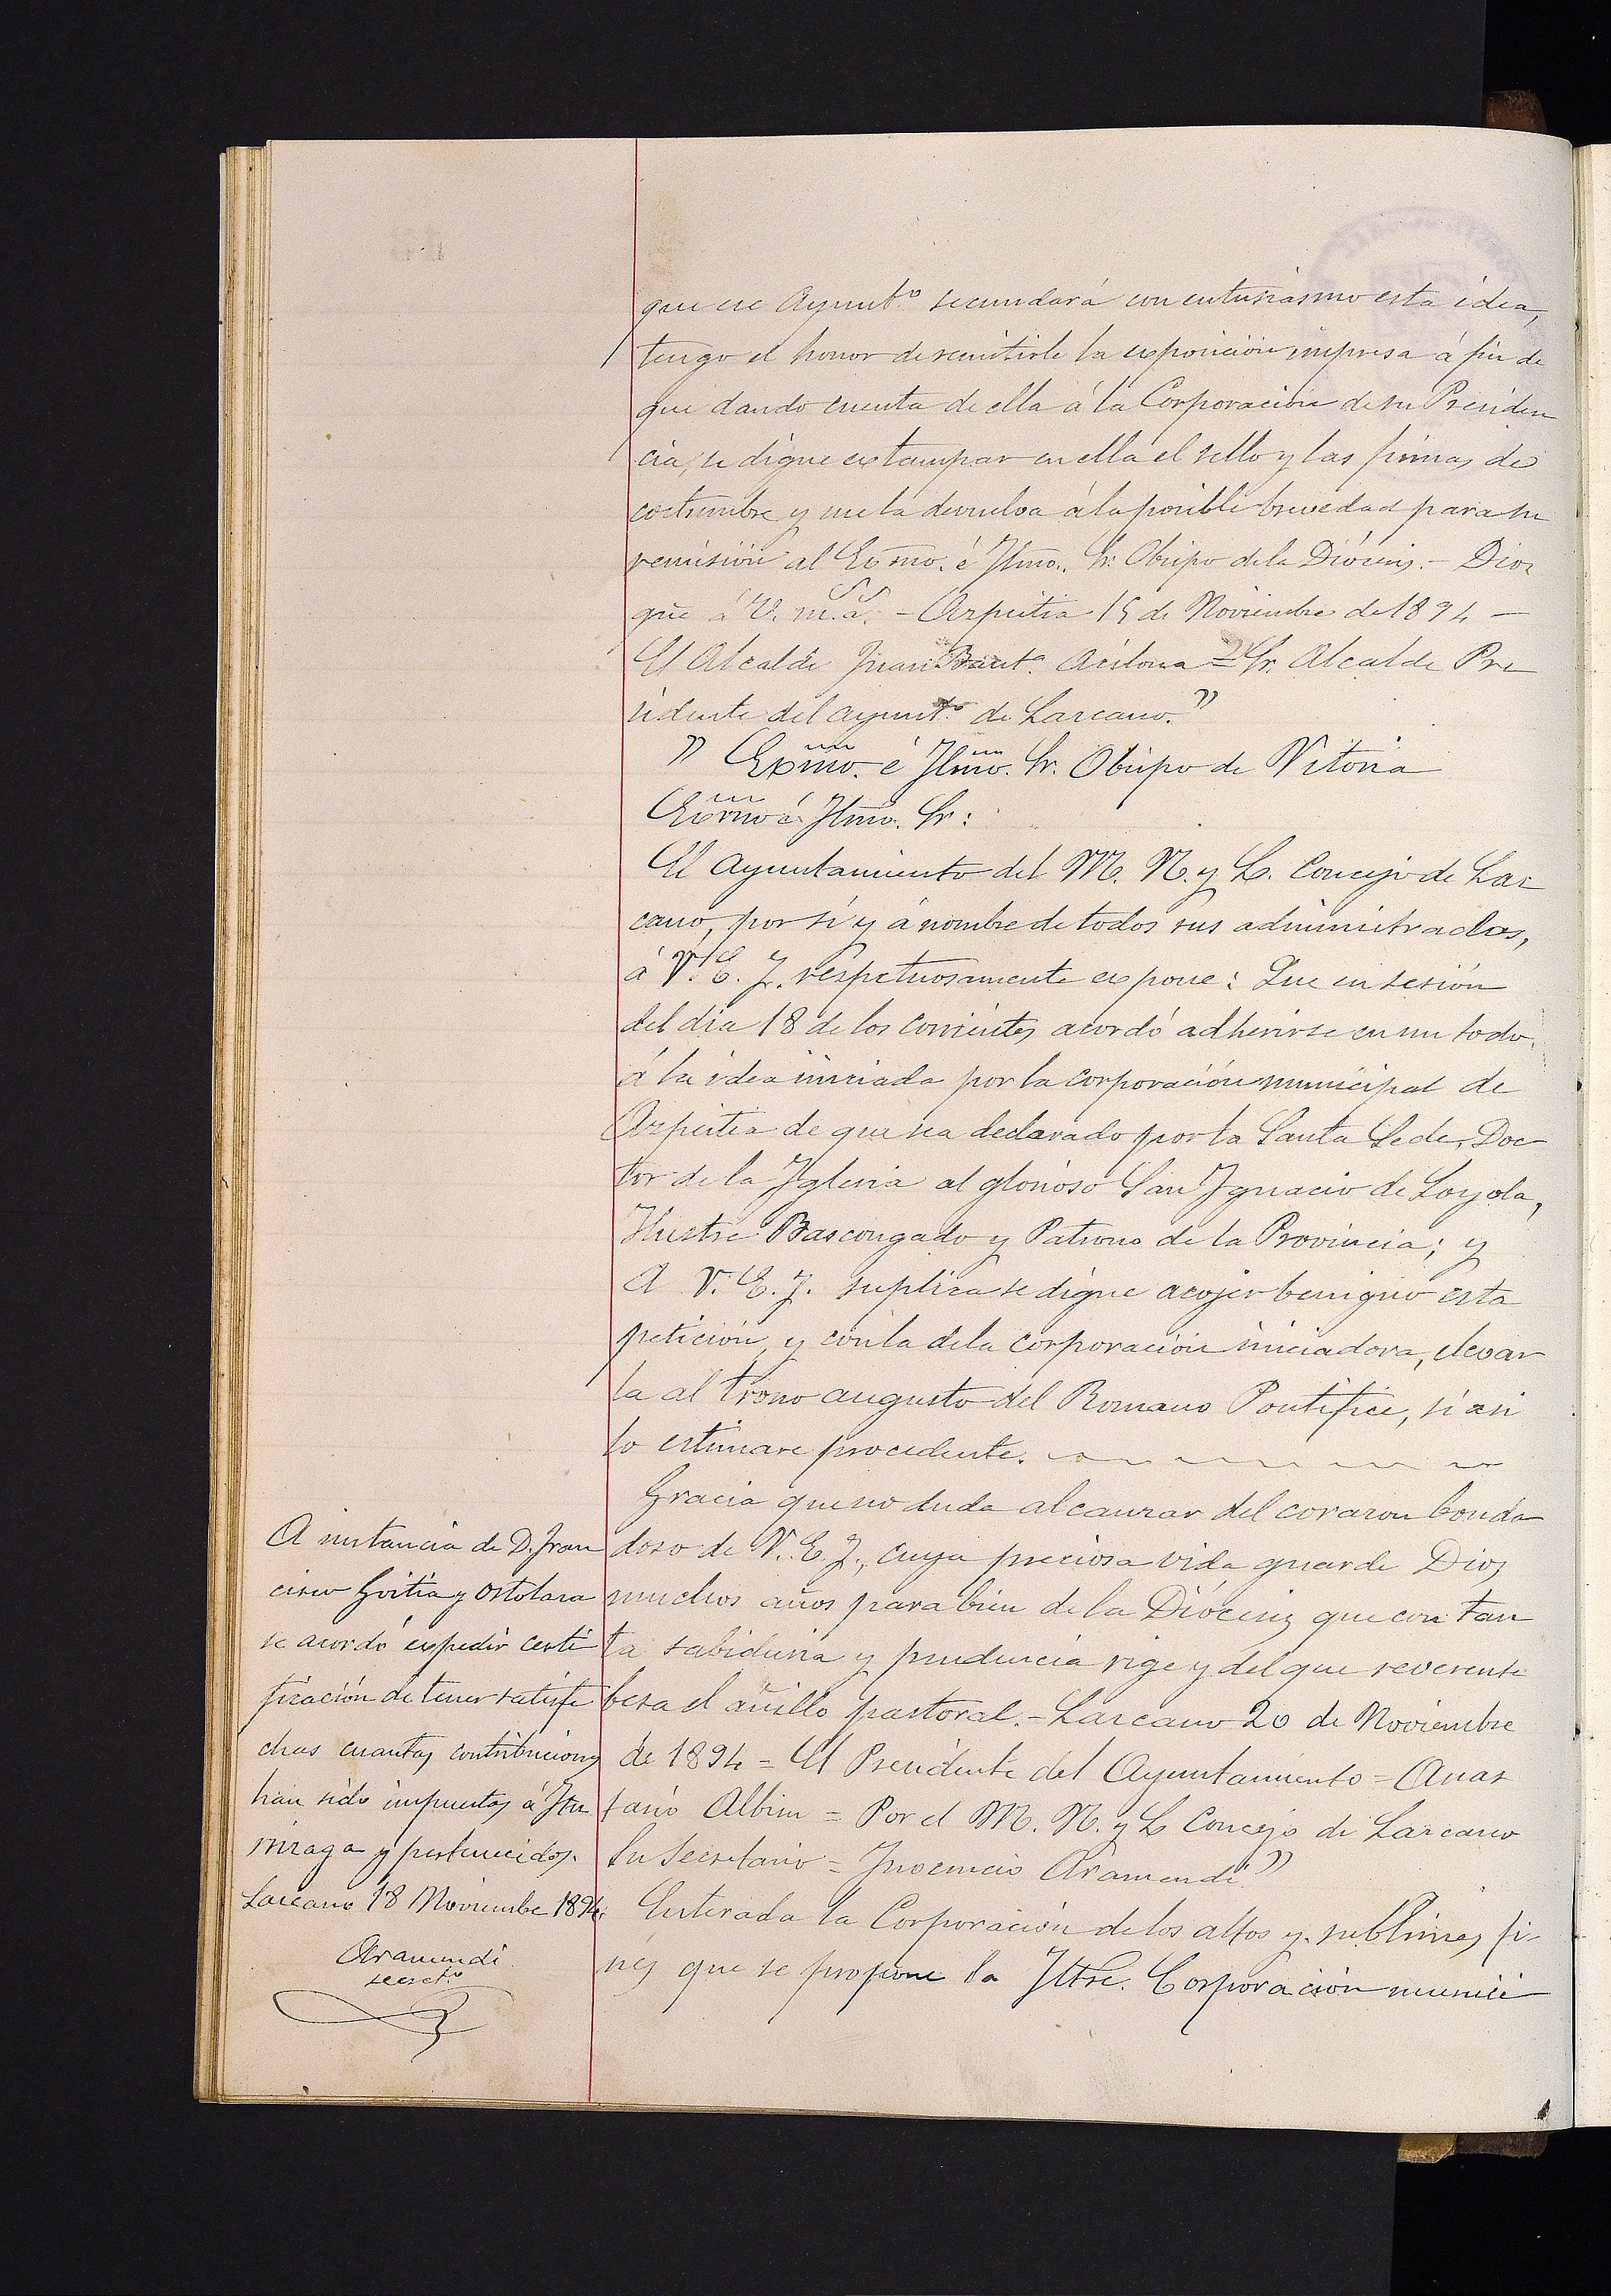 que ese Ayunt.º secundará con entusiasmo esta idea,
tengo el honor de remitirle la exposición impresa á fin de
que dando cuenta de ella á la Corporación de su Presiden
cia, se digne extampar en ella el sello y las firmas de
costumbre y me la devuelva á la posible brevedad para su
remisión al Excmo. é Iltmo. Sr. Obispo de la Diócesis.- Dios
gũe á V. m.s a.s - Azpeitia 15 de Noviembre de 1894 -
El Alcalde Juan Baut.ª Acilona = Sr. Alcalde Pre
sidente del ayunt.º de Lazcano."
" Excmo. é Iltmo. Sr. Obispo de Vitoria
Excmo é Iltmo. Sr:
El ayuntamiento del M. N. y L. Concejo de Laz
cano, por sí y á nombre de todos sus administrados,
á V. E. I. respetuosamente expone: Que en sesión
del día 18 de los corrientes acordó adherirse en un todo
á la idea iniciada por la corporación municipal de
Azpeitia de que sea declarado por la Santa Sede, Doc-
tor de la Iglesia al glorioso San Ignacio de Loyola,
Ilustre Bascongado y Patrono de la Provincia; y
A V. E. I. suplica se digne acojer benigno esta
petición, y con la de la corporación iniciadora, elevar
la al trono augusto del Romano Pontífice, si asi
lo estimare procedente.
Gracia que no duda alcanzar del corazon bonda
doso de V. E. I., cuya preciosa vida guarde Dios
muchos años para bien de la Diócesis que con tan
ta sabiduria y prudencia rige y del que reverente
besa el anillo pastoral.- Lazcano 20 de Noviembre
de 1894 = El Presidente del Ayuntamiento = Anas
tasio Albisu = Por el M. N. y L Concejo de Lazcano
Su Secretario = Inocencio Aramendi"
Enterada la Corporación de los altos y sublimes fi-
nes que se propone la Iltre. Corporación munici
A instancia de D. Fran
cisco Goitia y Ostolaza
se acordó expedir certi
ficación de tener satisfe
chas cuantas contribuciones
han sido impuestas á Itu
rrizaga y pertenecidos.
Lazcano 18 Noviembre 1894.
Aramendi
secret.º